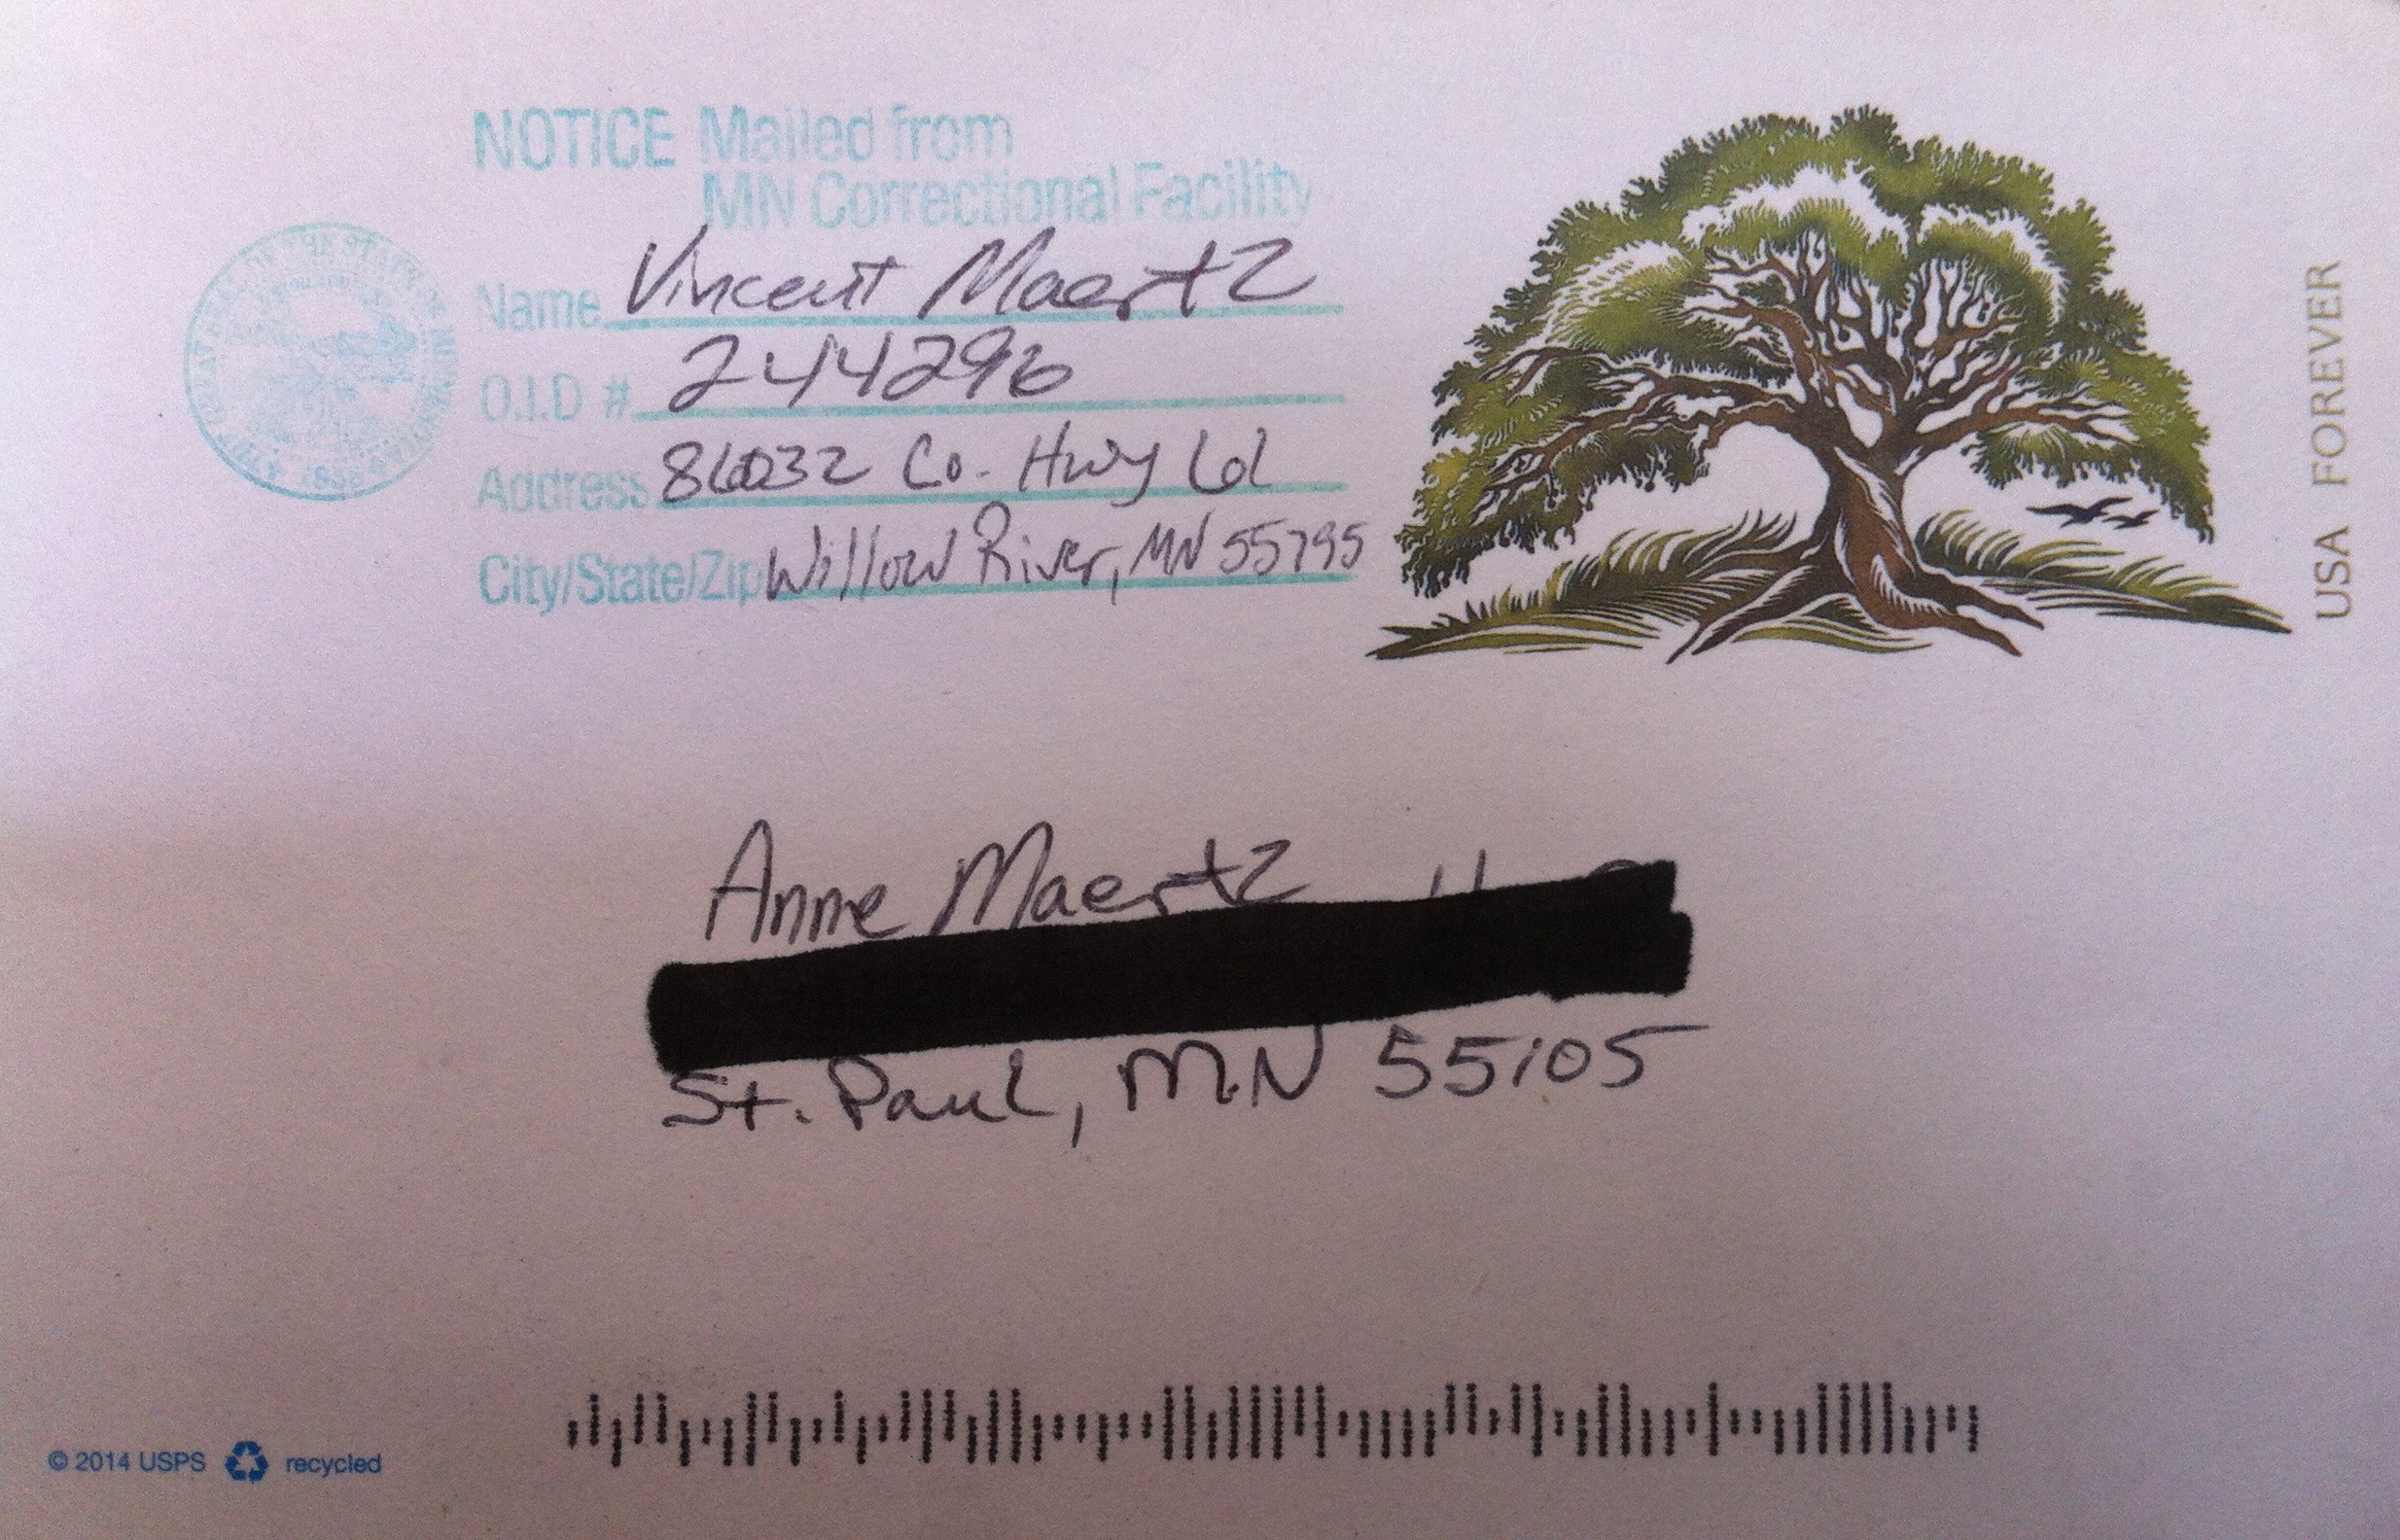 NOTICE Mailed from
MN Correctional Facility
Name Vincent Maertz
O.I.D # 244296
Address 86032 Co. Hwy 61
City/State/Zip Willow River, MN 55795
USA FOREVER
Anne Maertz
St. Paul, MN 55105
© 2014 USPS recycled